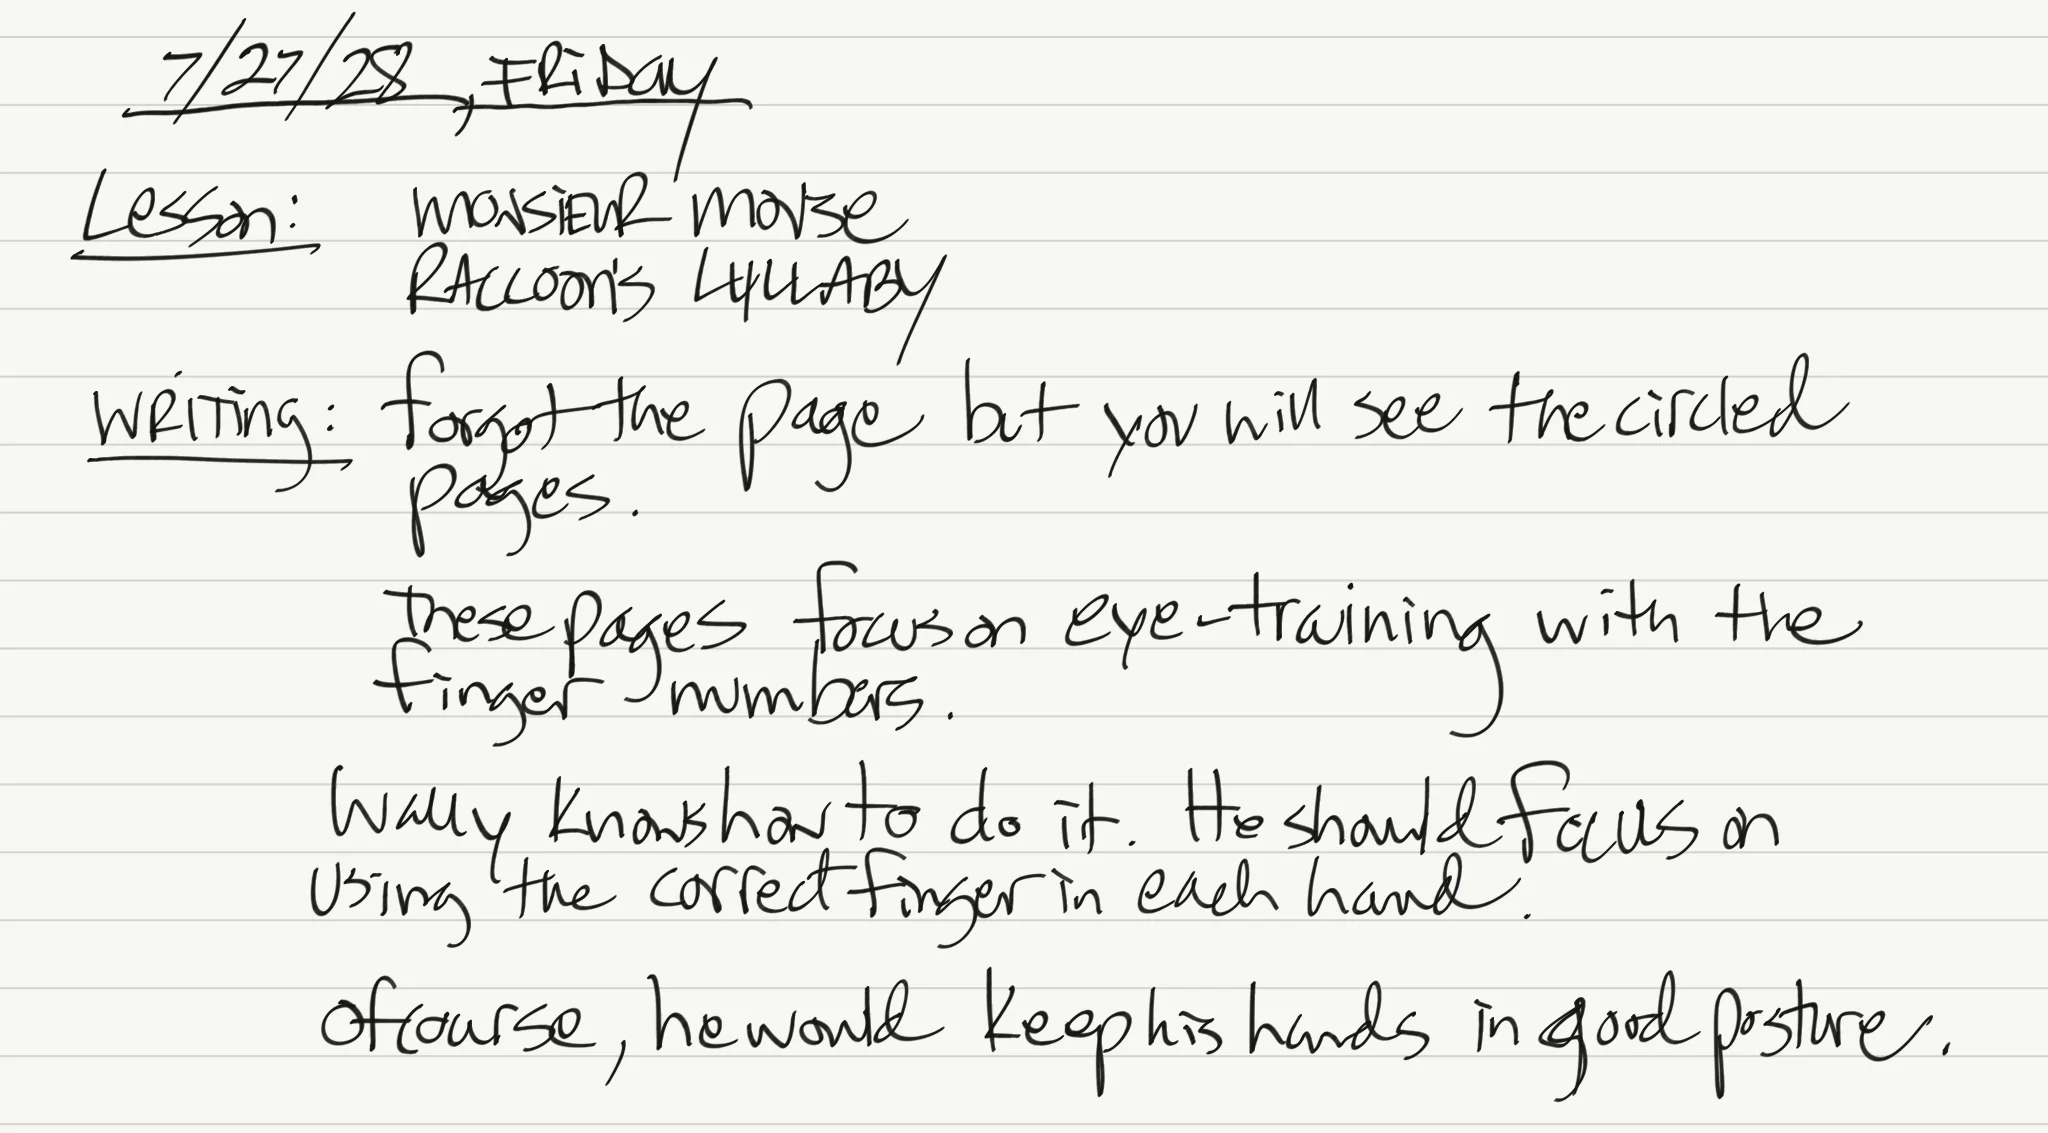 7/27/28, FRIDAY
Lesson: MONSIEUR MOUSE
RACCOON'S LYLLABY
WRITING: forgot the page but you will see the circled
pages.
These pages focus on eye-training with the
finger numbers.
Wally knows how to do it. He should focus on
using the correct finger in each hand.
Of course, he would keep his hands in good posture.